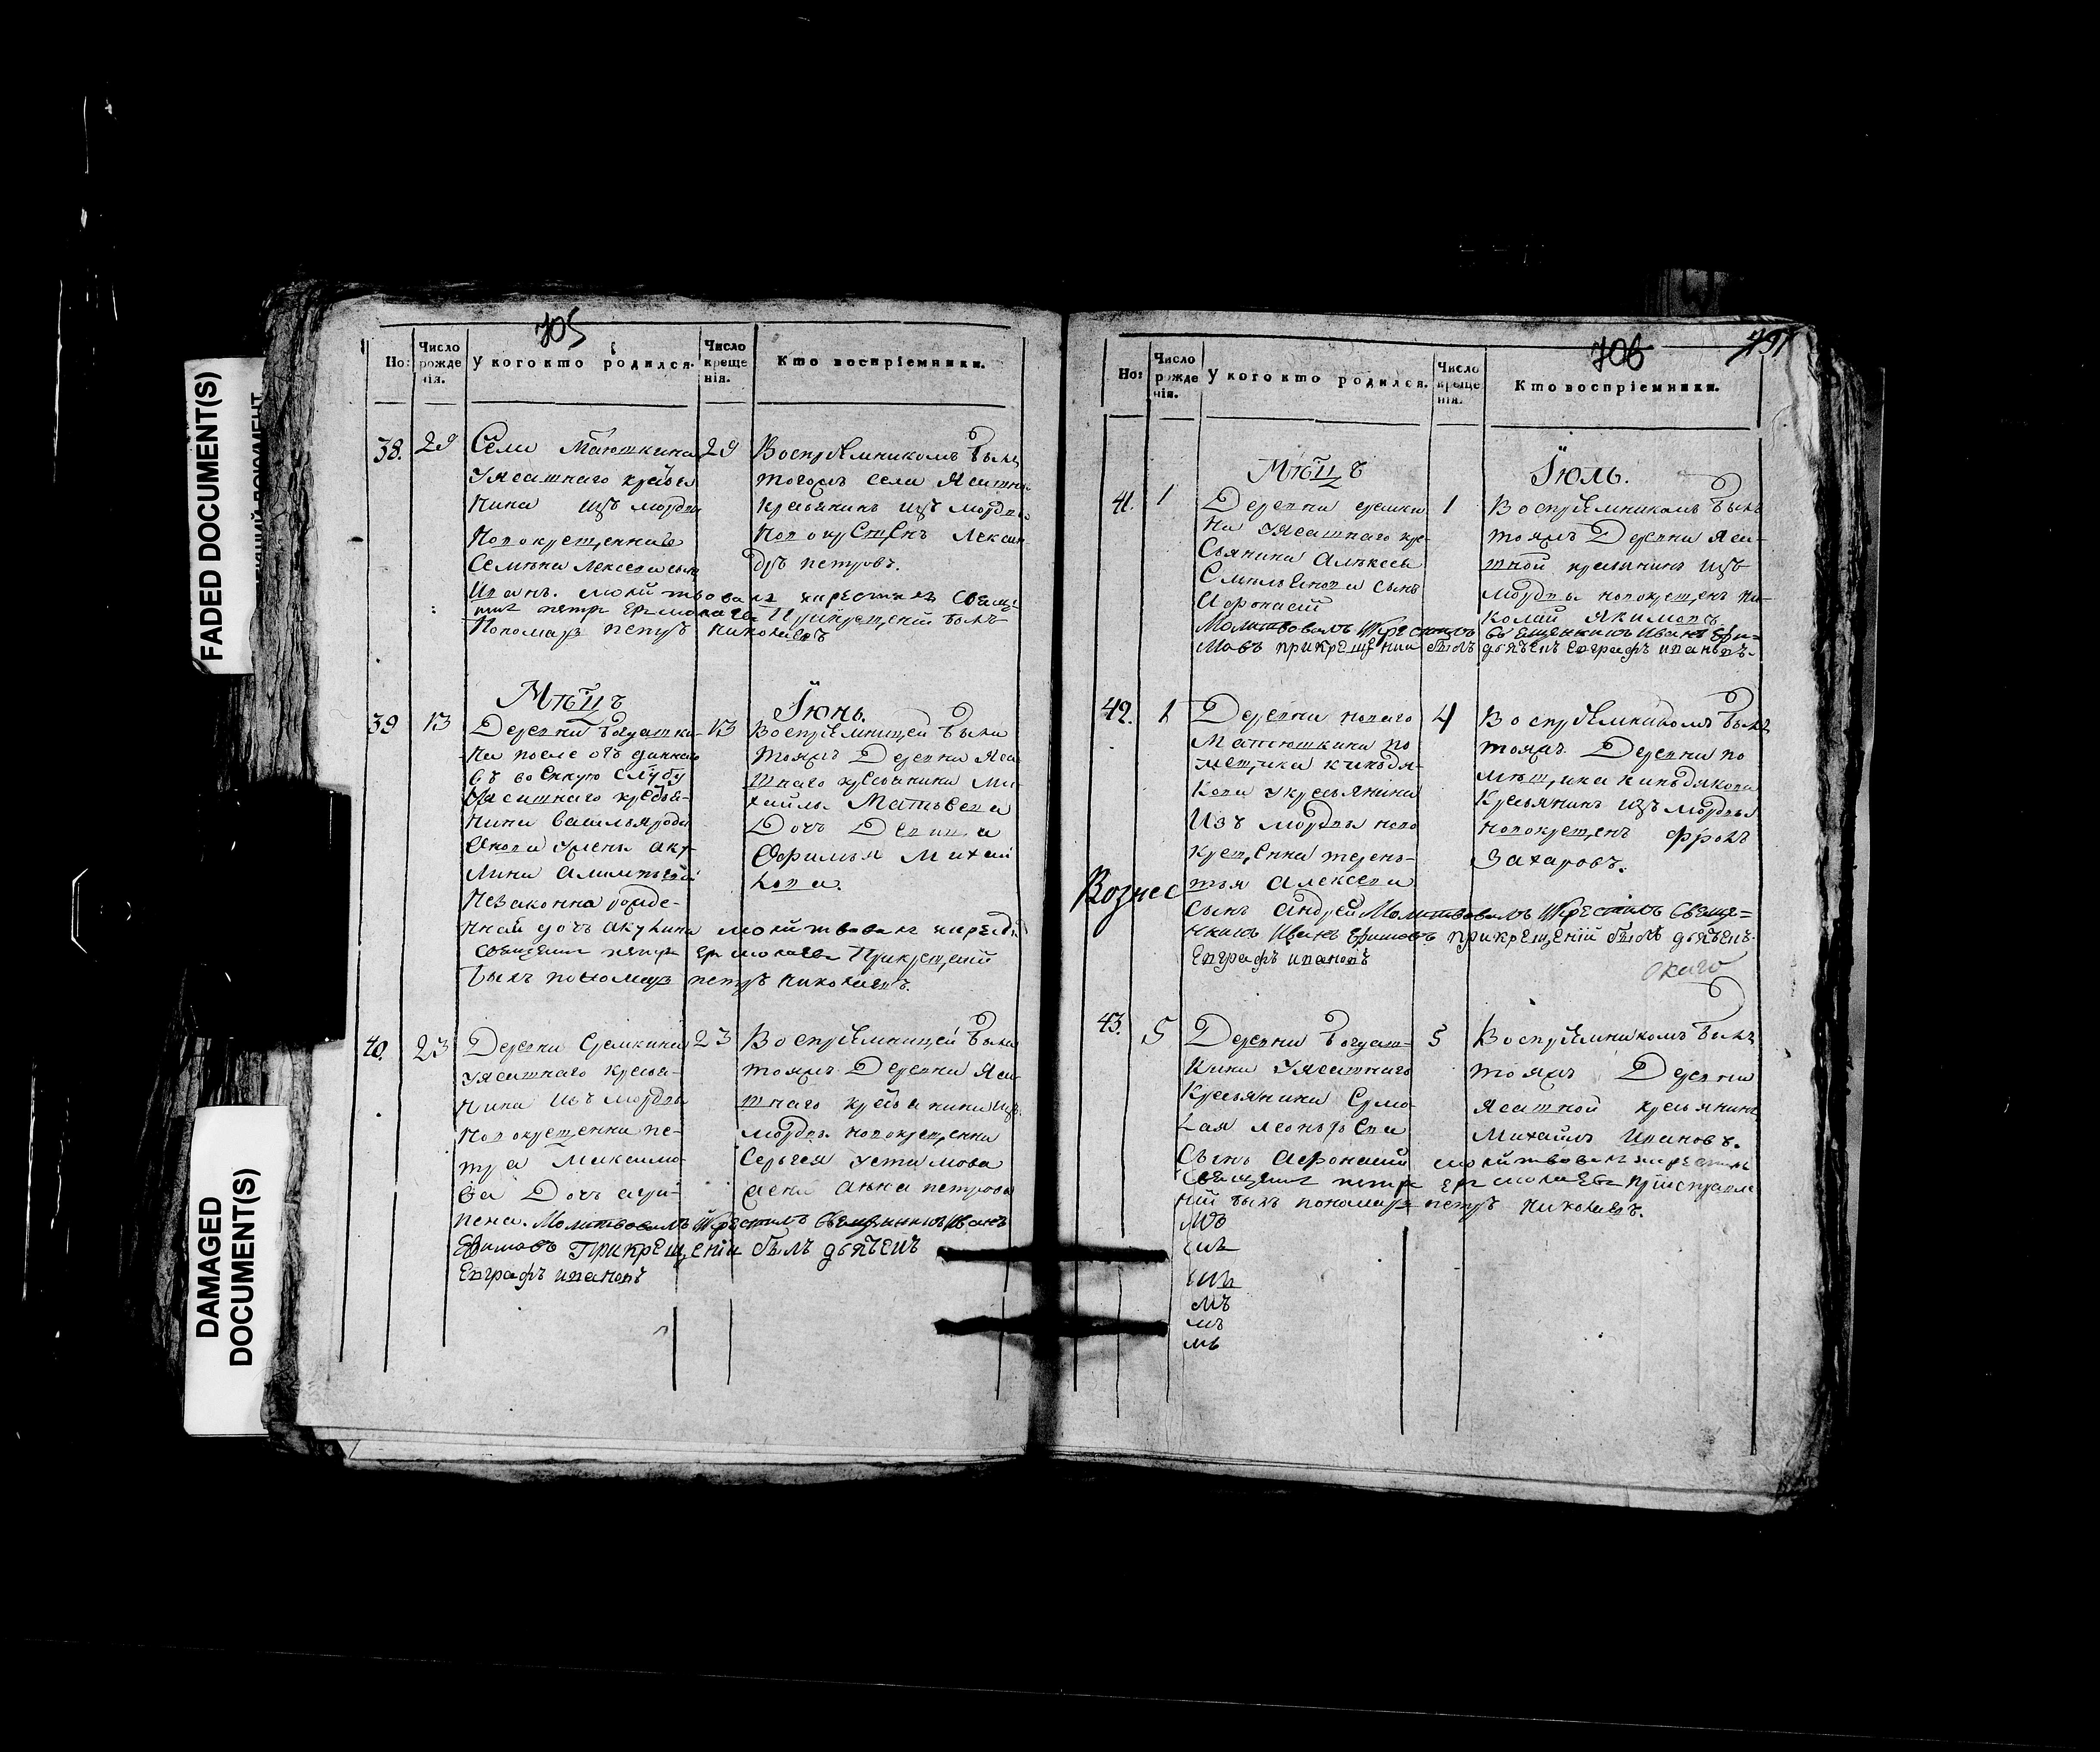 FADED DOCUMENT(S)
DAMAGED
DOCUMENT(S)
705
Но:
Число
рожде
нія.
У кого кто родился.
Число
креще
нія.
Кто воспріемники.
38.
29
Села Матюшкина
Уясашнаго кресья
нина изъ мордвы
новокрещеннаго
Семѣна Лексеева сынъ
Иванъ. молитвовалъ икрестилъ Свящ
петръ Ермолаевъ Прикрещеній былъ
Пономарь петръ николаевъ
29
Воспріемникомъ былъ
тогожъ села Ясашно
кресьянинъ изъ мордвы
новокрещенъ Лексан
дръ петровъ.
Мѣцъ
Іюнь.
39
13
Деревни богдашки
на после отъ даннаго
въ военную службу
Уясашнаго кресья-
нина василья роди
онова Ужены аку-
лины
незаконно рожде-
нная дочь акулина молитвовалъ икрести
Священ петръ Ермолаевъ Прикрещеній
былъ пономарь петръ николаевъ.
13
Воспріемницей была
тояжъ Деревни Яса
шнаго кресьянина Ми
хайлы Матвеева
Дочь Девица
Офимья Михай
лова.
40.
23
Деревни Сремкина
уясашнаго кресья-
нина изъ мордвы
новокрещенна пе-
тра Максимо-
ва Дочь агри-
пена. Молитвовалъ Икрестилъ Священникъ Иванъ
Ефимовъ Прикрещеніи былъ дьяченъ
Евграфъ ивановъ
23
Воспріемницей была
тояжъ Деревни Яса-
шнаго кресьянина изъ
мордвы новокрещенна
Сергея устимова
жена анна петрова
706
Но:
Число
рожде
нія.
У кого кто родился.
Число
креще
нія.
Кто воспріемники.
Мѣцъ
Іюль.
41.
1
Деревни сремки
на Уясашнаго кре-
сьянина Алексея
Емельянова сынъ
Афонасей
Молитвовалъ Икрестилъ Священникъ Иванъ Ефи-
мовъ прикрещеніи былъ дьяченъ Евграфъ ивановъ.
1
Воспріемникомъ былъ
тояжъ Деревни Яса-
шной кресьянинъ изъ
мордвы новокрещенъ ни-
колай Якимовъ
42.
1
Деревни новаго
Матюшкина по
мещика киндя-
кова укресьянина
Изъ мордвы ново
крещенна терень-
тья алексеева
сынъ андрей Молитвовалъ Икрестилъ Священ=
никъ Иванъ Ефимовъ прикрещеній былъ дьяченъ
Евграфъ ивановъ
4
Воспріемникомъ былъ
тояжъ Деревни по
мѣщика киндякова
Кресьянинъ изъ мордвы
новокрещенъ фролъ
Захаровъ.
Вознес
43.
5
Деревни богдаш-
кина Уясашнаго
Кресьянина Ермо-
лая леонтьева
Сынъ Афонасий молитвовалъ икрестилъ
Священ петръ Ермолаевъ приисправле
ній былъ пономарь петръ николаевъ.
5
Воспріемникомъ былъ
тояжъ Деревни
Ясашной кресьянинъ
Михайлъ Ивановъ.
мъ
мъ
мъ